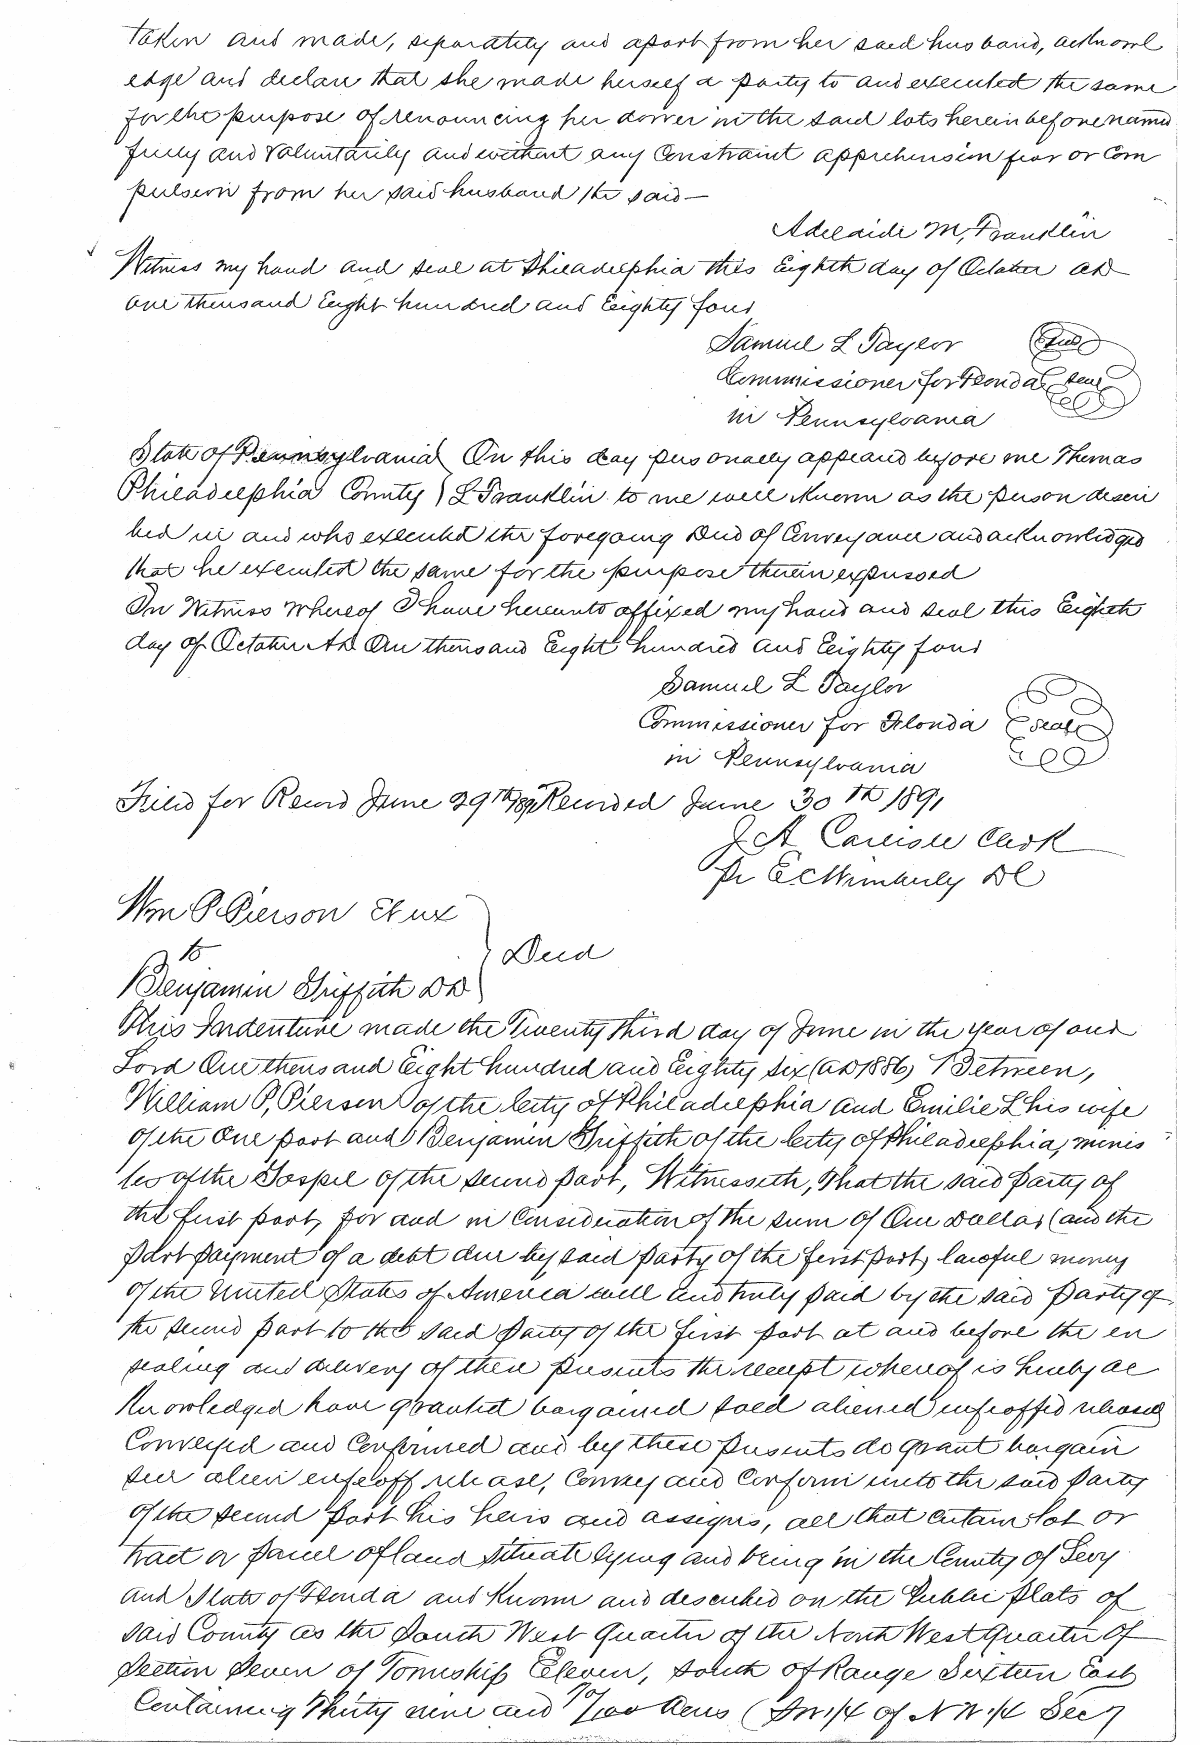 taken and made, separately and apart from her said husband, acknowl
edge and declare that she made herself a party to and executed the same
for the purpose of renouncing her dower in the said lots herein before named
freely and Voluntarily and without any Constraint apprehension fear or Com
pulsion from her said husband the said—
Adelaide M, Franklin
Witness my hand and seal at Philadelphia this Eighth day of October AD
one thousand Eight hundred and Eighty four
Samuel L Taylor
Commissioner for Florida seal
in Pennsylvania
State of Pennsylvania } On this day personally appeared before me Thomas
Philadelphia County } L Franklin to me well Known as the person descri
bed in and who executed the foregoing Deed of Conveyance and acknowledged
that he executed the same for the purpose therein expressed
In Witness whereof I have hereunto affixed my hand and seal this Eighth
day of October AD One thousand Eight hundred and Eighty four
Samuel L Taylor
Commissioner for Florida seal
in Pennsylvania
Filed for Record June 29th 1891 Recorded June 30th 1891
J A Carlisle Clerk
Pr E C Wimberly DC
Wm P. Pierson Et ux
to } Deed
Benjamin Griffith DD
This Indenture made the Twenty third day of June in the year of our
Lord One thousand Eight hundred and Eighty six (AD 1886) Between,
William P, Pierson of the City of Philadelphia and Emilie L his wife
of the One part and Benjamin Griffith of the City of Philadelphia, minis
ter of the Gospel of the second part, Witnesseth, That the said Party of
the first part, for and in Consideration of the sum of One Dollar (and the
part payment of a debt due by said party of the first part) lawful money
of the United States of America well and truly paid by the said Party of
the second part to the said Party of the first part at and before the en
sealing and delivery of these presents the receipt whereof is hereby ac
knowledged have granted bargained sold aliened enfeoffed released
Conveyed and Confirmed and by these presents do grant bargain
sell alien enfeoff release, Convey and Confirm unto the said Party
of the second Part his heirs and assigns, all that certain lot or
tract or parcel of land situate lying and being in the County of Levy
and State of Florida and Known and described on the Public plats of
said County as the South West Quarter of the North West Quarter of
Section Seven of Township Eleven, South of Range Sixteen East
Containing Thirty nine and 70/100 Acres (SW 1/4 of NW 1/4 Sec 7